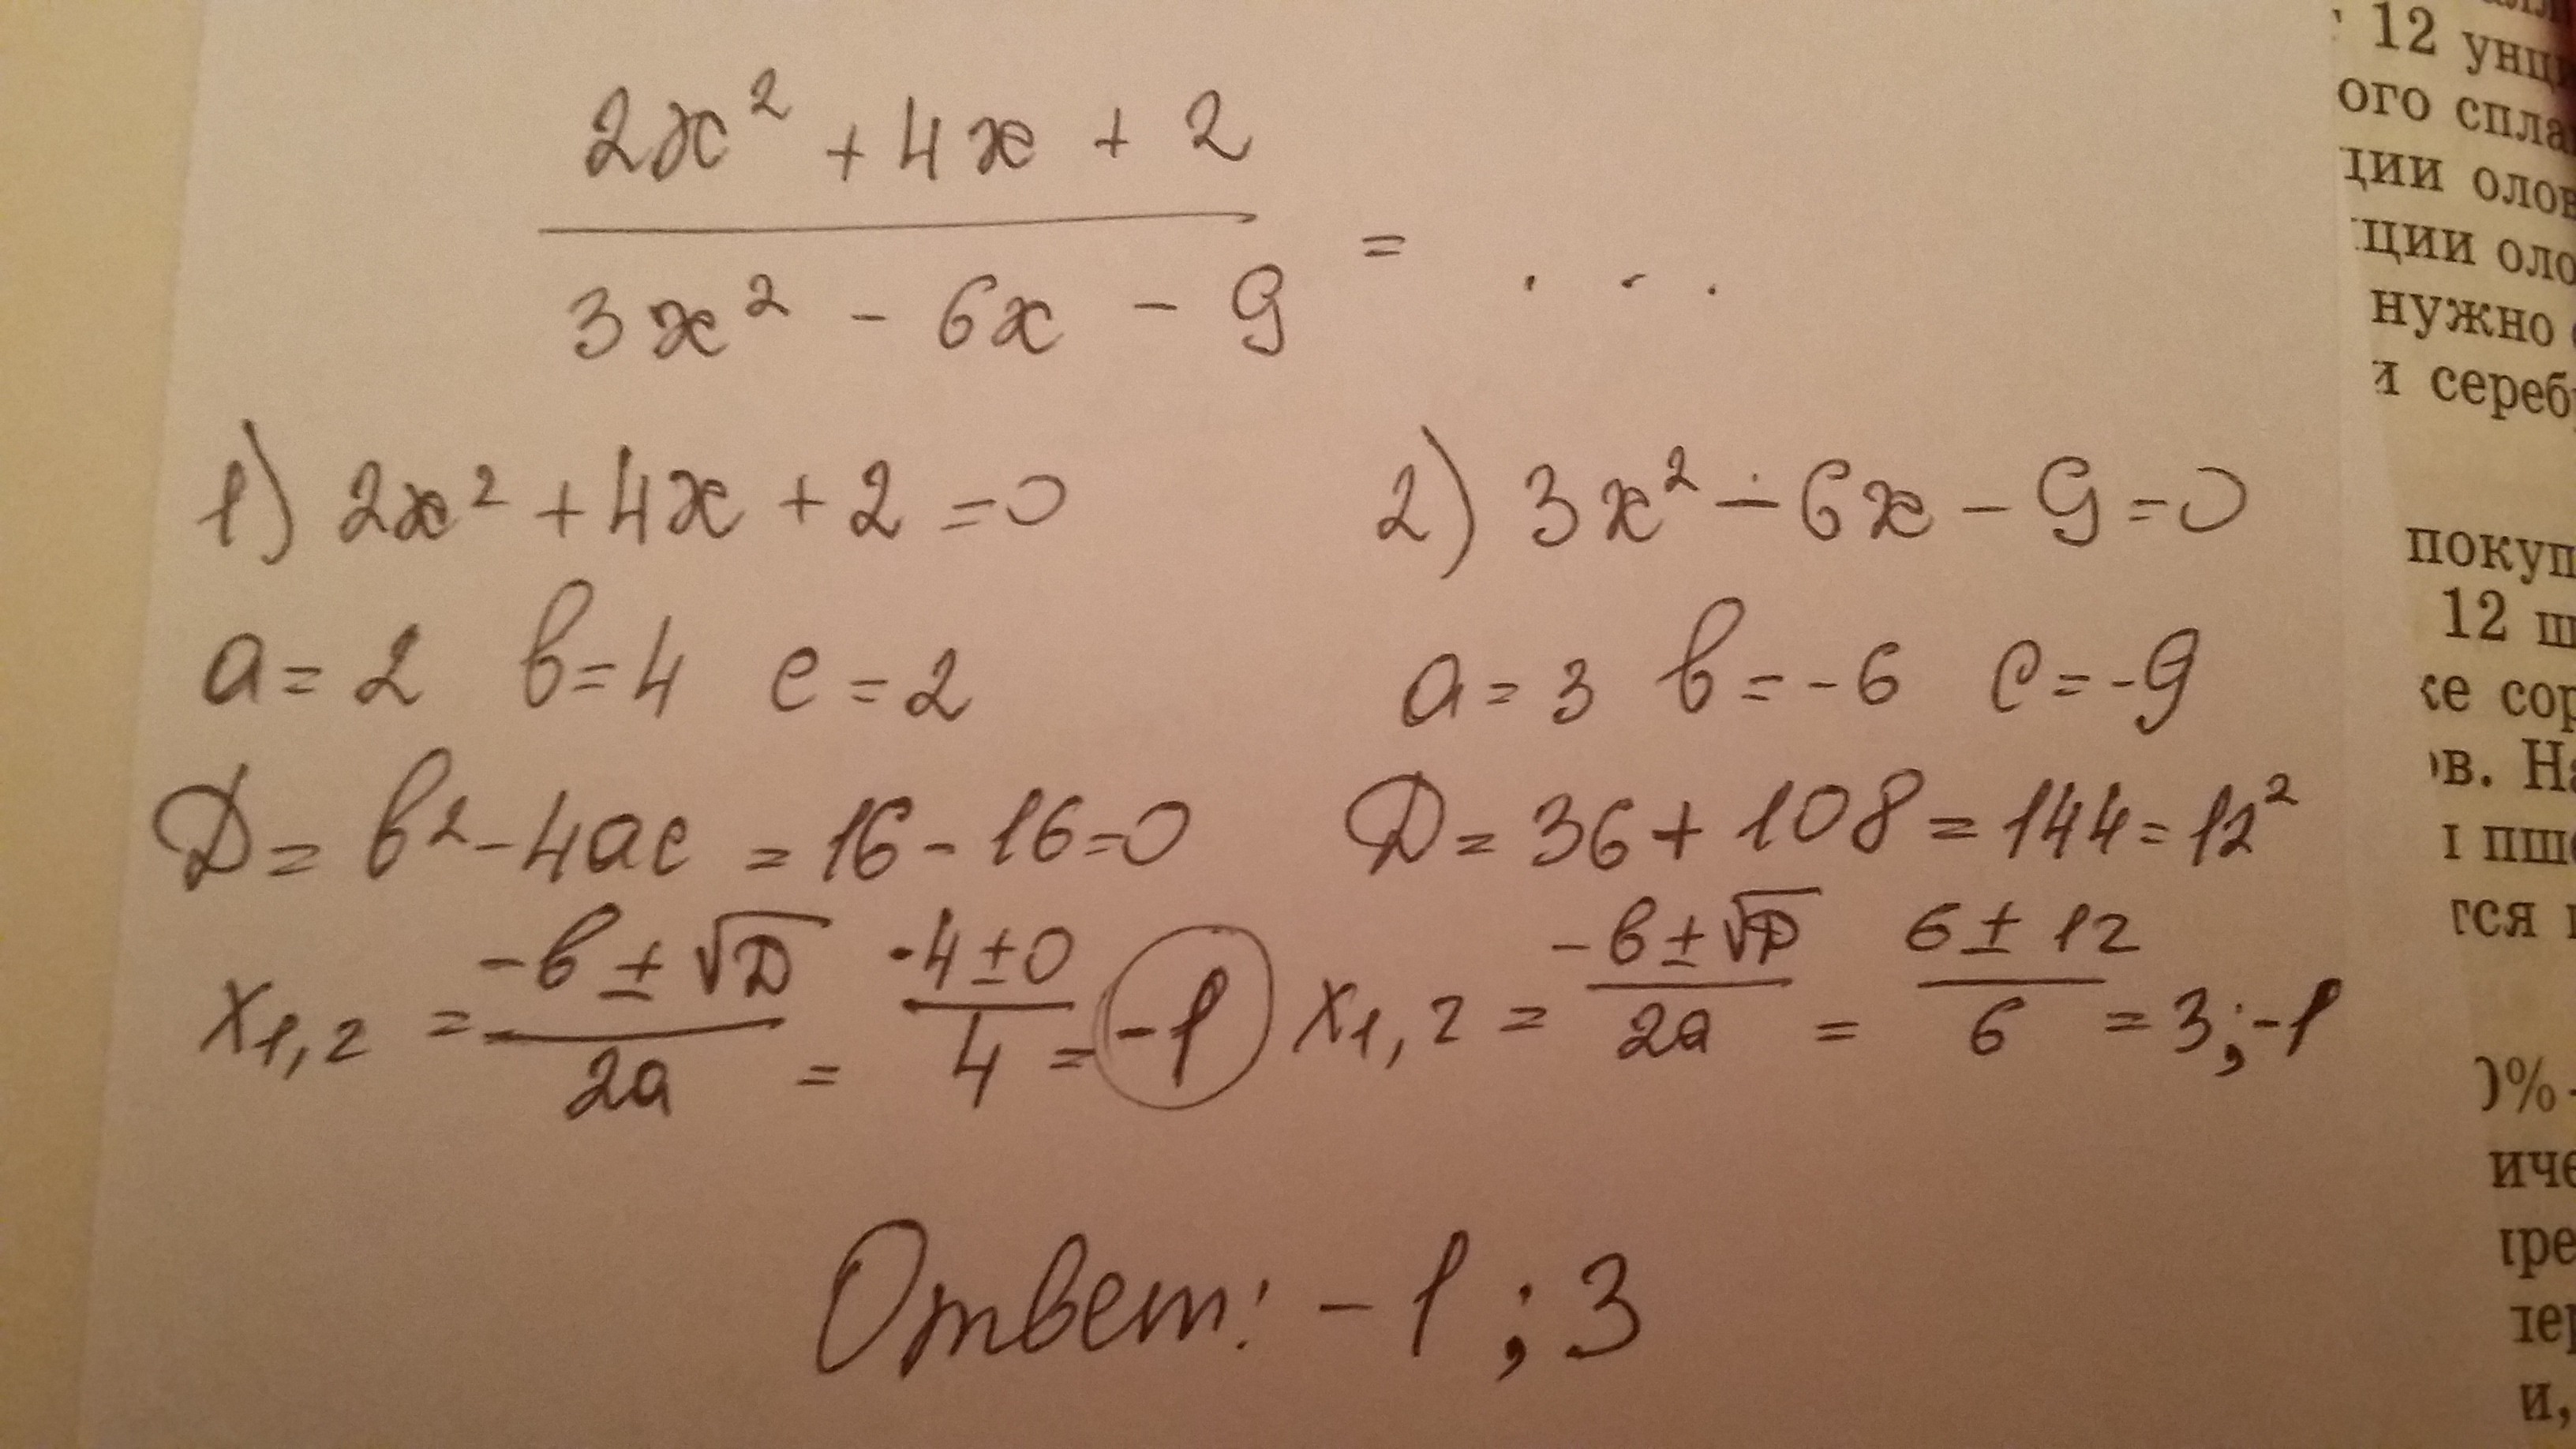 2x² + 4x + 2
―――――――― = ...
3x² - 6x - 9
1) 2x² + 4x + 2 = 0
a = 2 в = 4 c = 2
Д = в² - 4ac = 16 - 16 = 0
x₁,₂ = (-в ± √Д)/2a = (-4 ± 0)/4 = -1
2) 3x² - 6x - 9 = 0
a = 3 в = -6 c = -9
Д = 36 + 108 = 144 = 12²
x₁,₂ = (-в ± √Д)/2a = (6 ± 12)/6 = 3; -1
Ответ: -1 ; 3
12 унц
ого спла
ции олов
ции оло
нужно
и сереб
покуп
12 ш
же сор
ов. На
и пш
тся
0%
иче
тре
и,